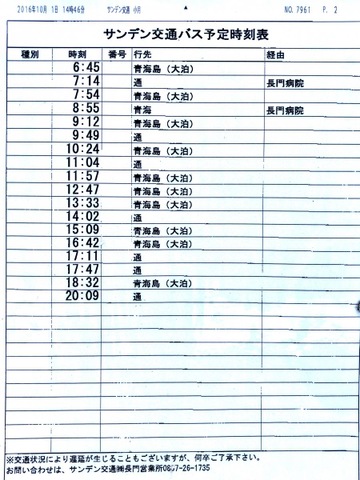 2016年10月 1日 14時46分 サンデン交通 小月 NO. 7961 P. 2
サンデン交通バス予定時刻表
種別 時刻 番号 行先 経由
6:45 青海島（大泊）
7:14 通 長門病院
7:54 青海島（大泊）
8:55 青海 長門病院
9:12 青海島（大泊）
9:49 通
10:24 青海島（大泊）
11:04 通
11:57 青海島（大泊）
12:47 青海島（大泊）
13:33 青海島（大泊）
14:02 通
15:09 青海島（大泊）
16:42 青海島（大泊）
17:11 通
17:47 通
18:32 青海島（大泊）
20:09 通
※交通状況により遅延が生じることもございますが、何卒ご了承下さい。
お問い合わせは、サンデン交通㈱長門営業所0837-26-1735